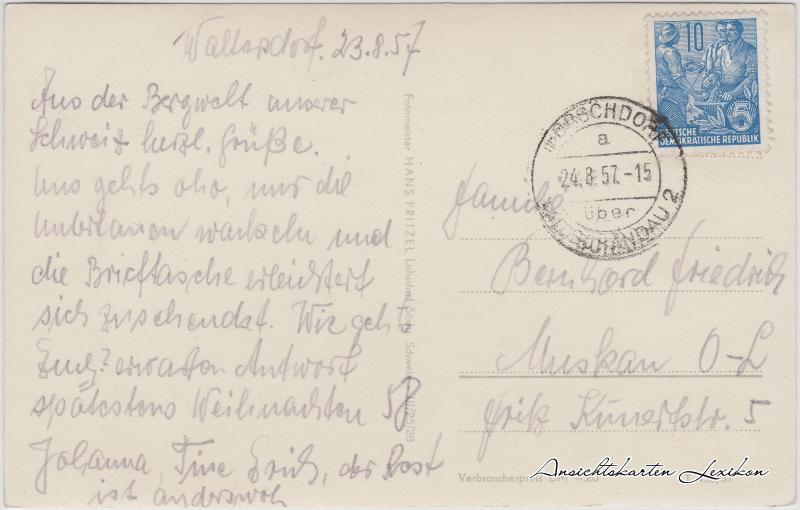 Waltersdorf. 23.8.57
Aus der Bergwelt unserer
Schweiz herzl. Grüße.
Uns gehts oho, nur die
Untertanen wackeln und
die Brieftasche erleichtert
sich zusehendst. Wie gehts
Euch? erwarten Antwort
spätestens Weihnachten 57
Johanna, Tine Erich, der Rest
ist anderswo
Fotomeister HANS PRITZEL, Lohsdorf, Sächs. Schweiz III/25/28
10
5
DEUTSCHE
DEMOKRATISCHE REPUBLIK
a
24.8.57.-15
über
SCHANDAU 2
Familie
Bernhard Friedrich
Muskau O-L
Fritz Kunertstr. 5
Verbraucherpreis DM -,20
Ansichtskarten Lexikon